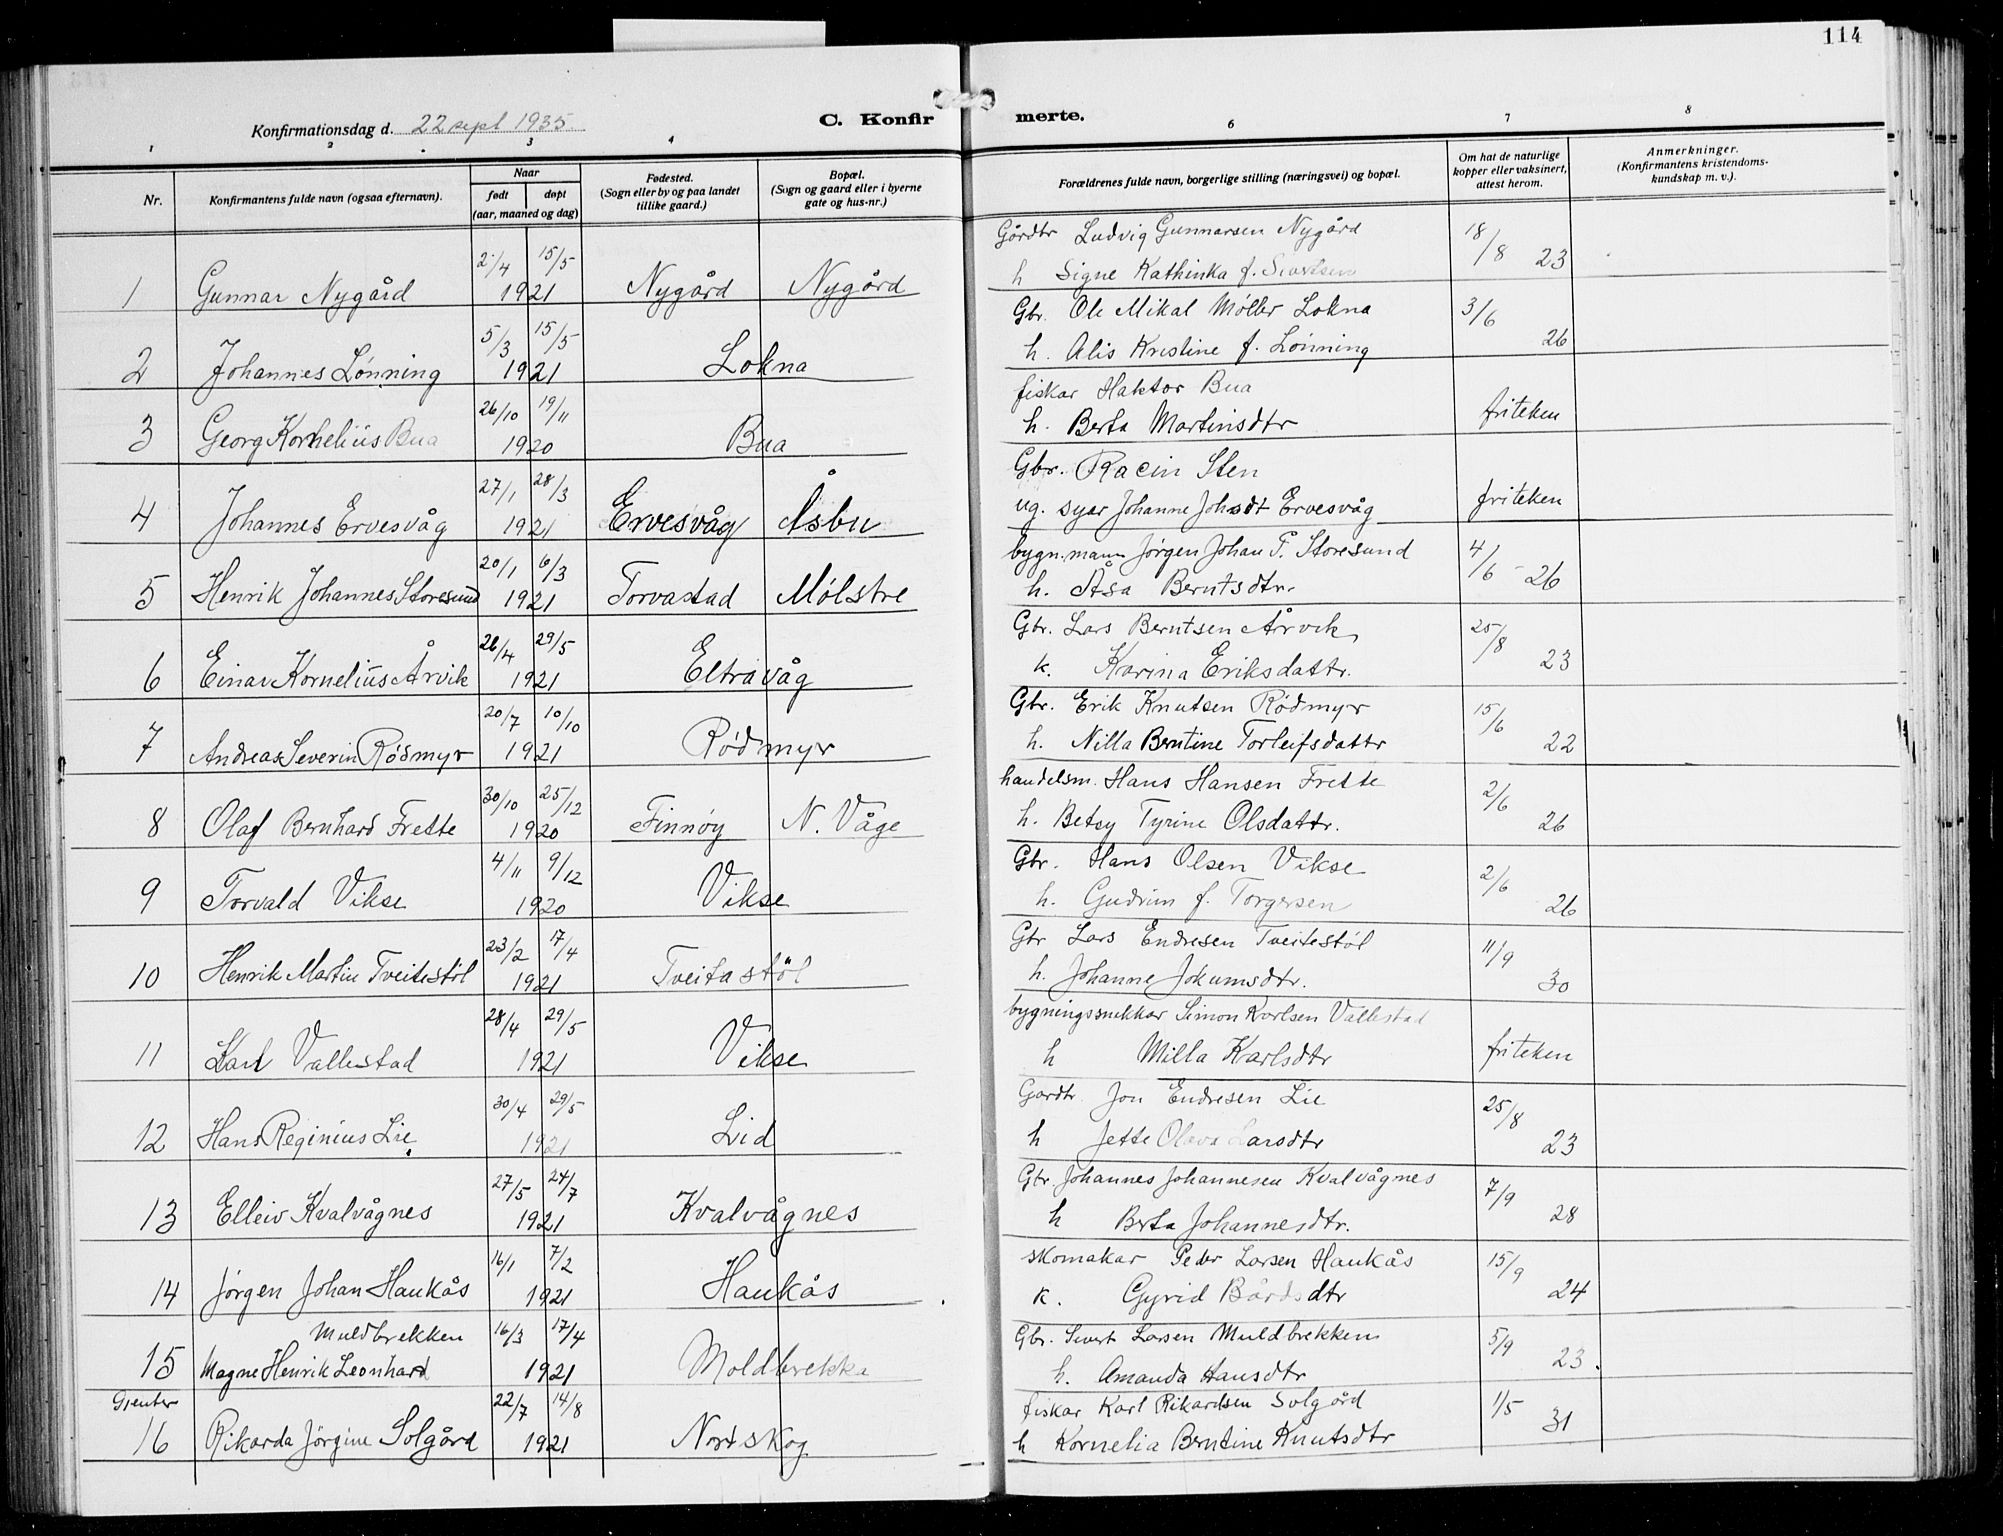 114
Konfirmationsdag d. 22 sept 1935.
C. Konfirmerte.
1 2 3 4 6 7 8
Nr.
Konfirmantens fulde navn (ogsaa efternavn).
Naar
født døpt
(aar, maaned og dag)
Fødested.
(Sogn eller by og paa landet
tillike gaard.)
Bopæl.
(Sogn og gaard eller i byerne
gate og hus-nr.)
Forældrenes fulde navn, borgerlige stilling (næringsvei) og bopæl.
Om hat de naturlige
kopper eller vaksinert,
attest herom.
Anmerkninger.
(Konfirmantens kristendoms-
kundskap m. v.).
Gårdbr Ludvig Gunnarsen Nygård 18/8 23
1 Gunnar Nygård 2/4 15/5 1921 Nygård Nygård h Signe Kathinka f. Sivertsen
Gbr. Ole Mikal Møller Lokna 3/6 26
2 Johannes Lønning 5/3 15/5 1921 Lokna h. Alis Kristine f. Lønning
fiskar Haktor Bua
3 Georg Kornelius Bua 26/10 19/11 1920 Bua h. Berta Martinsdtr friteken
Gbr. Racin Sten
4 Johannes Ervesvåg 27/1 28/3 1921 Ervesvåg Åsbu ug. syar Johanne Johsdt Ervesvåg friteken
bygn.mann Jørgen Johan P. Storesund 4/6 26
5 Henrik Johannes Storesund 20/1 6/3 1921 Torvastad Mølstre h. Åsa Berntsdtr.
Gbr. Lars Berntsen Årvik 25/8 23
6 Einar Kornelius Årvik 26/4 29/5 1921 Eltravåg k. Karina Eriksdattr.
Gbr. Erik Knutsen Rødmyr 15/6 22
7 Andreas Severin Røsmyr 20/7 10/10 1921 Rødmyr h. Nilla Berntine Torleifsdattr
handelsm. Hans Hansen Frette 2/6 26
8 Olaf Bernhard Frette 30/10 25/12 1920 Finnøy N. Våge h. Betsy Tyrine Olsdattr.
Gbr. Hans Olsen Vikse 2/6 26
9 Torvald Vikse 4/11 9/12 1920 Vikse h. Gudrun f. Torgersen
Gbr Lars Endresen Tveitestøl 11/9 30
10 Henrik Martin Tveitestøl 23/2 17/4 1921 Tveitastöl h. Johanne Jokumsdtr.
bygningssnikkar Simon Karlsen Vallestad
11 Karl Vallestad 28/4 29/5 1921 Vikse h Milla Karlsdtr friteken
Gardbr. Jon Endresen Lie 25/8 23
12 Hans Reginius Lie 30/4 29/5 1921 Lid h Jette Olava Larsdtr
Gbr. Johannes Johannesen Kvalvågnes 7/9 28
13 Elleiv Kvalvågnes 27/5 24/7 1921 Kvalvågnes h Brta Johannesdtr.
skomakar Peder Larsen Haukås 15/9 24
14 Jørgen Johan Haukås 16/1 7/2 1921 Haukås k. Gyrid Bårdsdtr
Muldbrekken Gbr. Sivert Larsen Muldbrekken 5/9 23.
15 Magne Henrik Leonhard 16/3 17/4 1921 Moldbrekka h. Amanda Hansdtr
Gjenter fiskar Karl Rikardsen Solgård 1/5 31
16 Rikarda Jørgine Solgård 22/7 14/8 1921 Nortskog h Kornelia Berntine Knutsdtr